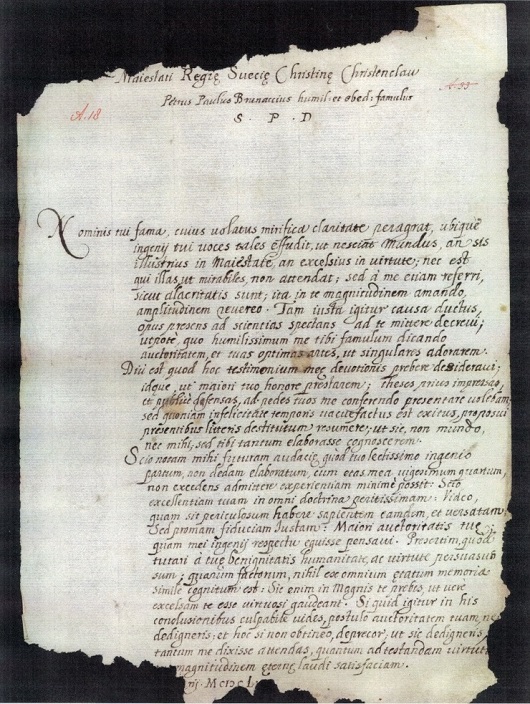 Maiestati Regię Suecię Christinę Christenclau
Petrus Paulus Brunaccius humil: et obed: famulus
A. 33
A. 18
S. P. D
Nominis tui fama, cuius volatus mirifica claritate peragrat, ubique
ingenij tui voces tales effudit, ut nesciat Mundus, an sis
illustrius in Maiestate, an excelsius in virtute; nec est
qui illas, ut mirabiles, non attendat; sed à me etiam referri,
sicut alacritatis sunt; ita in te magnitudinem amando,
amplitudinem revereo. Tam iusta igitur causa ductus,
opus presens ad scientias spectans ad te mittere decrevi;
utpote, quo humillimum me tibi famulum dicando
auctoritatem, et tuas optimas artes, ut singulares adorarem.
Diu est quod hoc testimonium meę devotionis prebere desideravi;
idque, ut maiori tuo honore prestarem; Theses, prius impressas,
et publice defensas, ad pedes tuos me conferendo presentare volebam
sed quoniam infelicitate temporis vacuefactus est exitus, proposui
presentibus literis destitutum resumere; ut sic, non mundo,
nec mihi, sed tibi tantum elaborasse cognoscerem.
Scio notam mihi futuram audacię, quod tuo lectissimo ingenio
partum, non dedam elaboratum, cum ętas mea, vigesimum quartum,
non excedens admittere experientiam minimè possit: Scio
excellentiam tuam in omni doctrina peritissimam: Video,
quam sit periculosum habere sapientem eamdem, et versatam:
Sed promam fiduciam Iustam: Maiori auctoritatis tuę,
quam mei ingenij respectu eguisse pensavi. Presertim, quod
tutari à tuę benignitatis humanitate, ac virtute persuasus
sum; quarum factorum, nihil ex omnium ętatum memoria
simile cognitum est: Sic enim in Magnis te prebes, ut verè
excelsam te esse virtuosi gaudeant. Si quid igitur in his
conclusionibus culpabile vides, postulo auctoritatem tuam, ne
dedigneris; et hoc si non obtineo, deprecor, ut sic dedigneris
tantum me dixisse attendas, quantum ad testandam virtut
magnitudinem ęternę laudi satisfaciam.